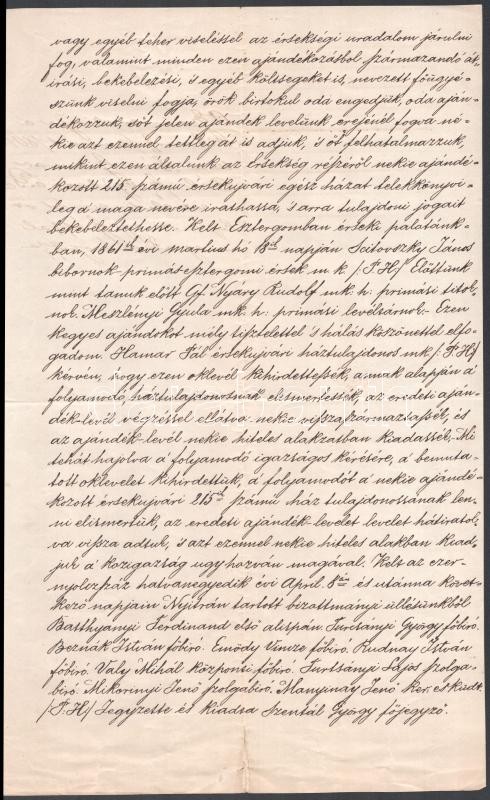 vagy egyéb teher viseléssel az érsekségi uradalom járulni
fog, valamint minden ezen ajándékozásból származandó át-
irási, bekebelezési, s egyéb költségeket is, nevezett főügyé-
szünk viselni fogja, örök birtokul oda engedjük, oda aján-
dékozzuk, sőt jelen ajándék levelünk erejénél fogva né-
kie azt ezennel tettleg át is adjuk, s őt felhatalmazzuk,
mikint ezen általunk az Érsekség részéről nekie ajándé-
kozott 215. számú érsekujvári egész házat telekkönyvi-
leg a maga nevére irathassa, s arra tulajdoni jogait
bekebeleztethesse. Kelt Esztergomban érseki palotánk-
ban, 1861ik évi martius hó 18ik napján Scitovszky János
bibornok-primás esztergomi érsek m. k. /:P.H:/ Előttünk
mint tanuk előtt Gf. Nyáry Rudolf mk. h. primási titok-
nok. Meszlényi Gyula mk. h. primási levéltárnok.- Ezen
kegyes ajándokot mély tisztelettel s hálás köszönettel elfo-
gadom. Hamar Pál érsekujvári háztulajdonos mk /:P.H:/
kérvén, hogy ezen oklevél kihirdettessék, annak alapján a
folyamodó, háztulajdonosnak elismertessék, az eredeti aján-
dék-levél végzéssel ellátva nekie visszaszármaztassék, és
az ajándék-levél nekie hiteles alakzatban kiadassék,- Mi
tehát hajolva a folyamodó igazságos kérésére, a bemuta-
tott oklevelet kihirdettük, a folyamodót a nekie ajándé-
kozott érsekujvári 215ik számú ház tulajdonosának len-
ni elismertük, az eredeti ajándék-levelet levelet hátiratol-
va vissza adtuk, s azt ezennel nekie hiteles alakban kiad-
juk a közigazság ugy hozván magával. Kelt az ezer-
nyolczszáz hatvanegyedik évi April 8án és utánna követ-
kező napjain Nyitrán tartott bizottmányi üllésünkből
Batthyányi Ferdinand első alispán Turcsányi György főbiró.
Beznák István főbiró. Emődy Vincze főbiró. Rudnay István
főbiró. Valy Mihál központi főbiró. Turtsányi Lajos szolga-
biró. Mikorinyi Jenő szolgabiró. Jenő ker. es.
/:P.H:/ Jegyzette és kiadta Szentál György főjegyző.